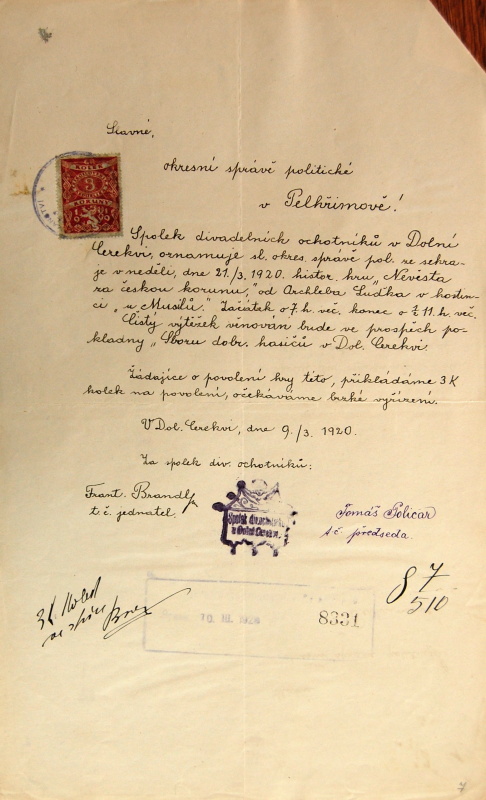 Slavné,
okresní správě politické
v Pelhřimově!
Spolek divadelních ochotníků v Dolní
Cerekvi, oznamuje sl. okres. správě pol. že sehra-
je v neděli, dne 21./3. 1920. histor. hru „Nevěsta
za českou korunu," od Archleba Luďka v hostin-
ci „u Musilů." Začátek o 7. h. več. konec o ½ 11. h. več.
Čistý výtěžek věnován bude ve prospěch po-
kladny „Sboru dobr. hasičů v Dol. Cerekvi.
Žádajíce o povolení hry této, přikládáme 3 K
kolek na povolení, očekáváme brzké vyřízení.
V Dol. Cerekvi, dne 9./3. 1920.
Za spolek div. ochotníků:
Frant. Brandl
t. č. jednatel.
Spolek
v Dolní Cerekvi.
Tomáš Policar
t č. předseda.
3 K kolek
8 7/510
10. III. 1920
8331
7
3
KORUNY